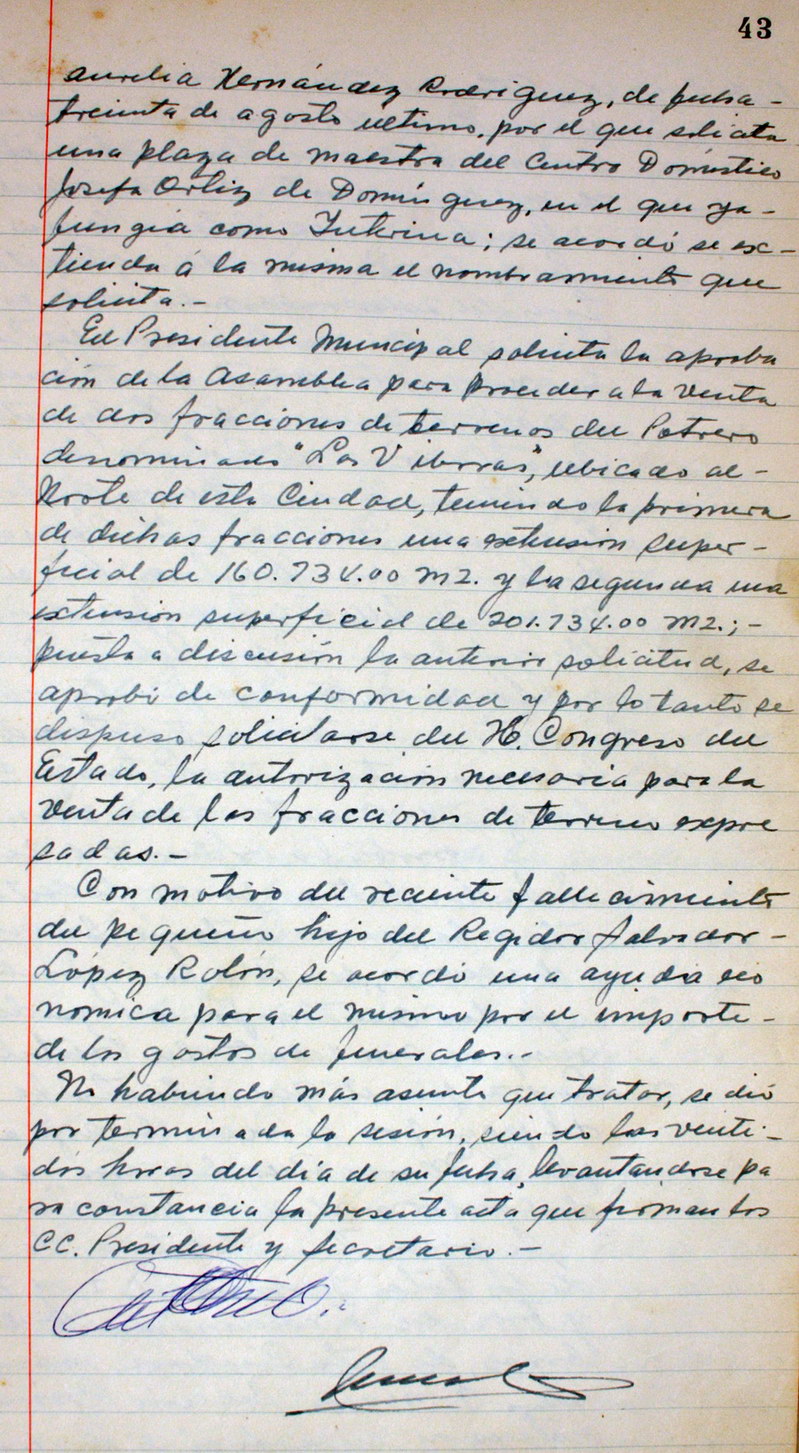 43
Aurelia Hernández Rodriguez, de fecha -
treinta de agosto ultimo, por el que solicita
una plaza de maestra del Centro Doméstico
Josefa Ortiz de Domínguez, en el que ya -
fungía como Interina; se acordó se ex-
tienda á la misma el nombramiento que
solicita.-
El Presidente Municipal solicita la aproba
ción de la Asamblea para proceder a la venta
de dos fracciones de terrenos del Potrero
denominado "Las Viboras", ubicado al -
Norte de esta Ciudad, teniendo la primera
de dichas fracciones una extensión super-
ficial de 160.734.00 M2. y la segunda una
extensión superficial de 201.734.00 M2.; -
puesta a discusión la anterior solicitud, se
aprobó de conformidad y por lo tanto se
dispuso solicitarse del H. Congreso del
Estado, la autorización necesaria para la
venta de las fracciones de terreno expre
sadas.-
Con motivo del reciente fallecimiento
del pequeño hijo del Regidor Salvador -
López Rolón, se acordó una ayuda eco
nomica para el mismo por el importe -
de los gastos de funerales.-
No habiendo más asunto que tratar, se dió
por terminada la sesión, siendo las venti-
dós horas del día de su fecha, levantandose pa
ra constancia la presente acta que firman los
CC. Presidente y Secretario.-